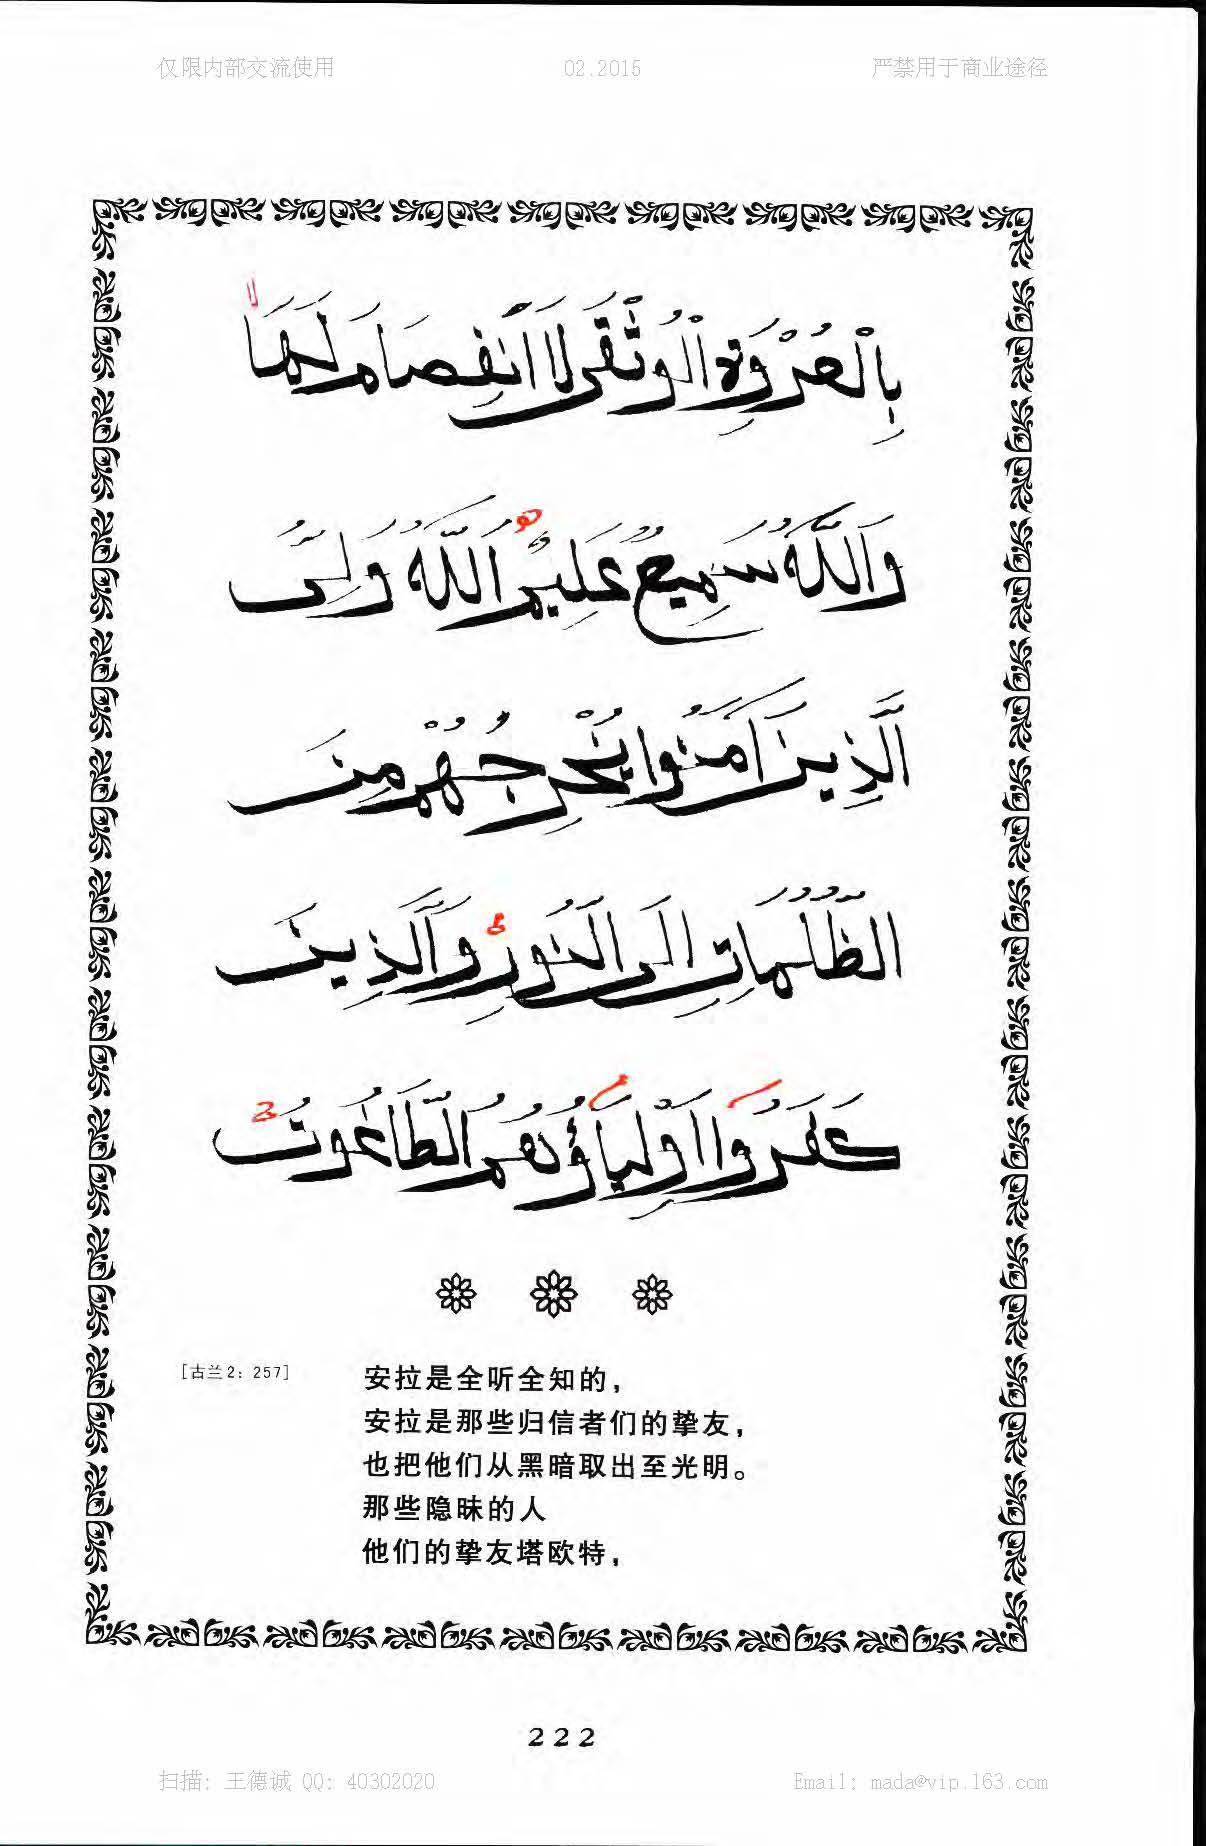 仅限内部交流使用 02.2015 严禁用于商业途径
بِالْعُرْوَةِ الْوُثْقَى لَا انْفِصَامَ لَهَا
وَاللَّهُ سَمِيعٌ عَلِيمٌ اللَّهُ وَلِيُّ
الَّذِينَ آمَنُوا يُخْرِجُهُمْ مِنَ
الظُّلُمَاتِ إِلَى النُّورِ وَالَّذِينَ
كَفَرُوا أَوْلِيَاؤُهُمُ الطَّاغُوتُ
[古兰2: 257] 安拉是全听全知的,
安拉是那些归信者们的挚友,
也把他们从黑暗取出至光明。
那些隐昧的人
他们的挚友塔欧特,
222
扫描: 王德诚 QQ: 40302020 Email: mada@vip.163.com